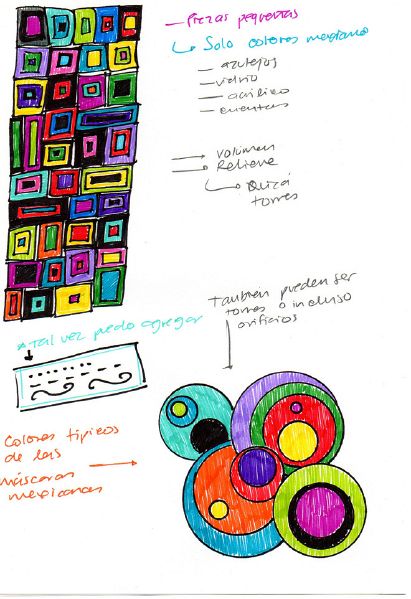 — Piezas pequeñas
↳ Solo colores mexicano
— azulejos
— vidrio
— acrilico
— cuentas
→ volúmen
→ Relieve
↳ Quizá
torres
También pueden ser
torres o incluso
orificios
* Tal vez puedo agregar
Colores típicos
de las
máscaras
mexicanas